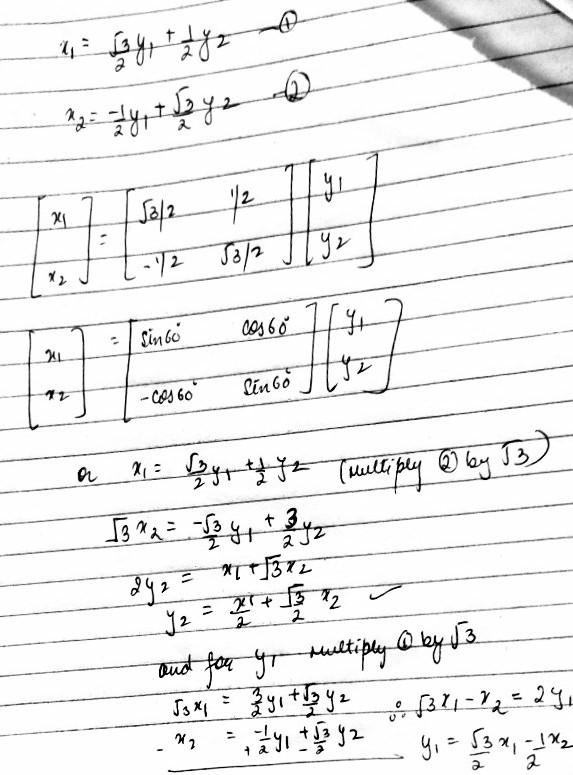 x₁ = √3/2 y₁ + 1/2 y₂ —①
x₂ = -1/2 y₁ + √3/2 y₂ —②
[x₁ x₂] = [√3/2 1/2 -1/2 √3/2] [y₁ y₂]
[x₁ x₂] = [Sin60° cos60° -cos60° Sin60°] [y₁ y₂]
or x₁ = √3/2 y₁ + 1/2 y₂ (Multiply ② by √3)
√3 x₂ = -√3/2 y₁ + 3/2 y₂
2y₂ = x₁ + √3 x₂
y₂ = x₁/2 + √3/2 x₂ ✓
and for y₁ multiply ① by √3
√3x₁ = 3/2 y₁ + √3/2 y₂
- x₂ = -1/2 y₁ + √3/2 y₂
+ -
∴ √3x₁ - x₂ = 2y₁
y₁ = √3/2 x₁ - 1/2 x₂